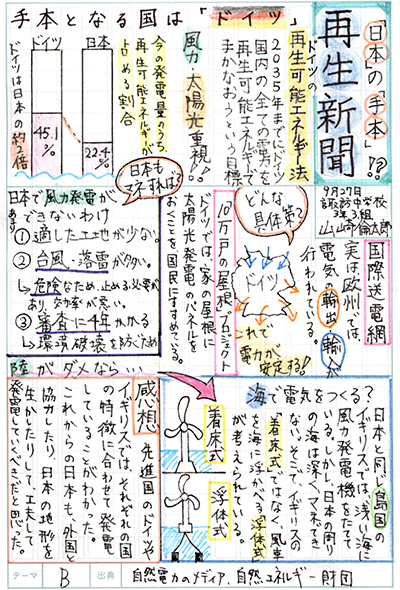 「日本の「手本」!?」
再生新聞
9月27日
諏訪中学校
3年3組
山崎倫太郎
手本となる国は「ドイツ」
ドイツの
再生可能エネルギー法
2035年までにドイツ
国内の全ての電力を
再生可能エネルギーで
まかなおうという目標
風力・太陽光重視!!
今の発電量のうち、
再生可能エネルギーが
占める割合
ドイツ
日本
45.1%
22.4%
ドイツは日本の約2倍
国際送電網
実は欧州では、
電気の輸出・輸入が
行われている。
ドイツ
これで
電力が
安定する!
どんな
具体策?
「10万戸の屋根」プロジェクト
ドイツでは、家の屋根に
太陽光発電のパネルを
おくことを国民にすすめている。
日本も
マネすれば?
日本で風力発電が
あまり
できないわけ
①適した土地が少ない。
②台風・落雷が多い。
↳危険なため、止める必要が
あり、効率が悪い。
③審査に4年かかる
↳環境破壊を防ぐため
陸がダメなら…
海で電気をつくる?
日本と同じ島国の
イギリスでは、浅い海に
風力発電機をたてて
いる。しかし、日本の周り
の海は深く、マネできない。
そこで、イギリスの
「着床式」ではなく、風車
を海に浮かべる「浮体式」
が考えられている。
着床式
浮体式
感想
先進国のドイツや
イギリスでは、それぞれの国
の特徴に合わせて発電
していることがわかった。
これからの日本も、外国と
協力したり、日本の地形を
生かしたりして、工夫して
発電していくべきだと思った。
テーマ
B
出典
自然電力のメディア、自然エネルギー財団